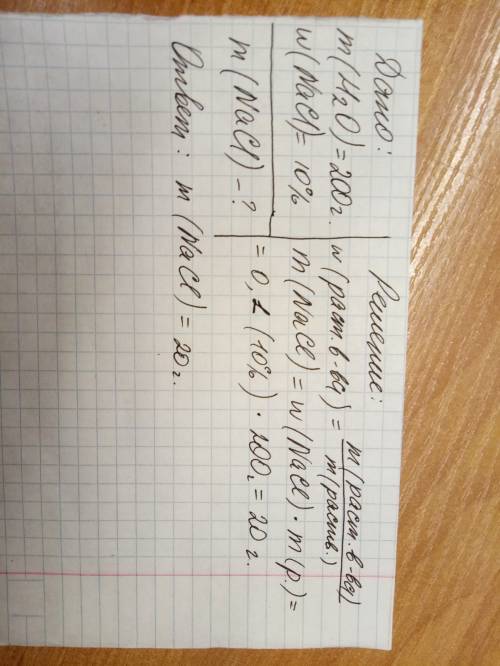 Дано:
m(H2O)=200г.
w(NaCl)=10%
m(NaCl)-?
Решение:
w(раст.в-ва)= m(раст.в-ва)
m(раств.)
m(NaCl)=w(NaCl)·m(р.)=
=0,1(10%)·200г=20г.
Ответ: m(NaCl)=20г.